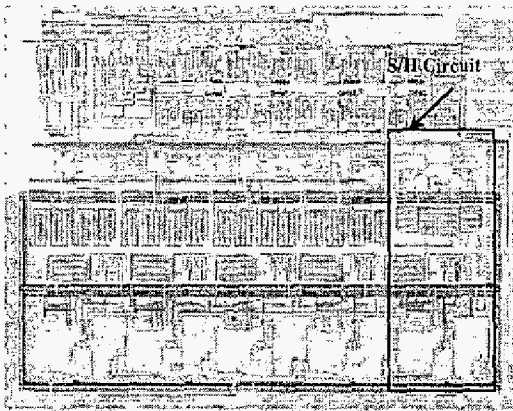 S/H Circuit